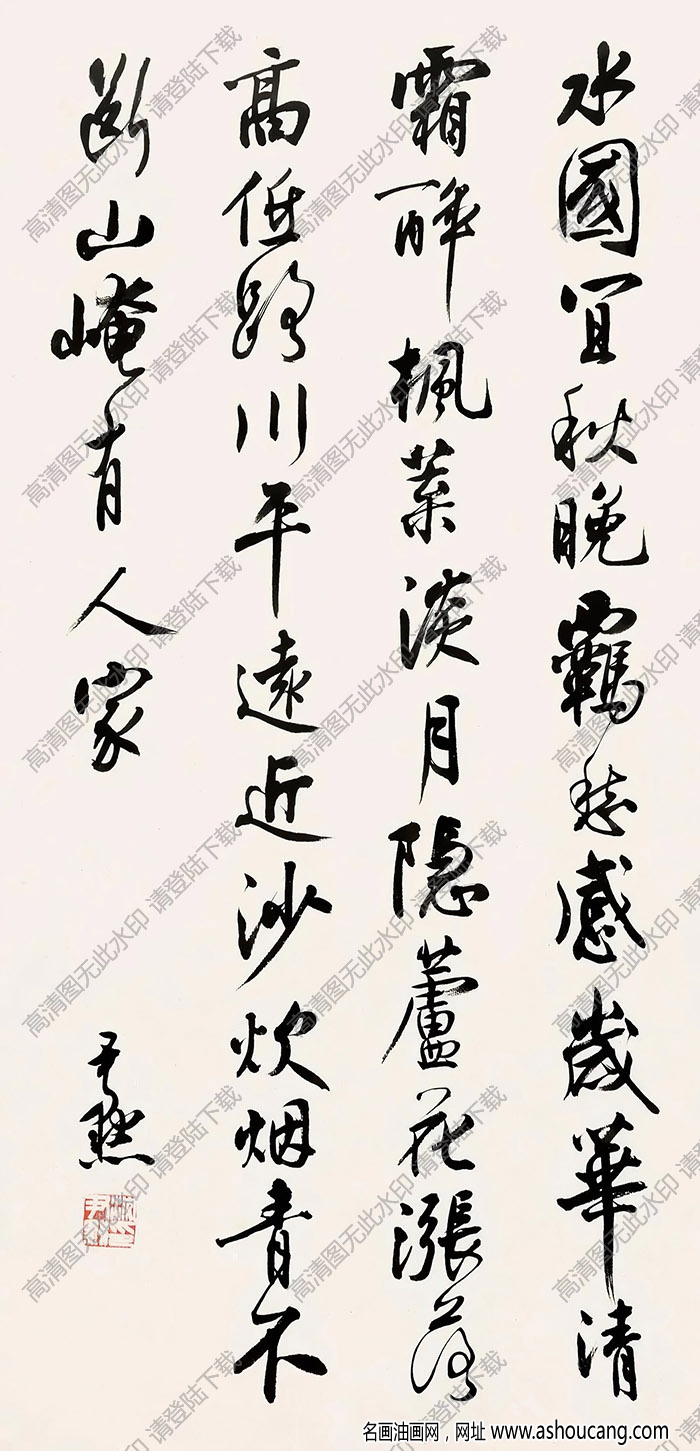 水國宜秋晚羈愁感歲華清
霜醉楓葉淡月隱蘆花漲落
高低路川平遠近沙炊烟青不
斷山崦有人家
尹默
高清图无此水印 请登陆下载
名画油画网，网址 www.ashoucang.com